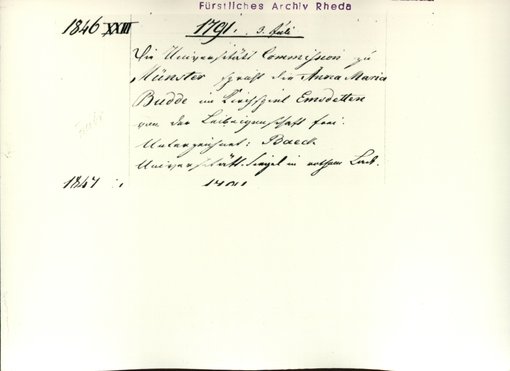 Fürstliches Archiv Rheda
1846 XXIII 1791. 3. Juli
Die Universität Commission zu
Münster spricht die Anna Maria
Budde im Kirchspiel Emsdetten
von der Leibeigenschaft frei.
Unterzeichnet: Baeck
Universität. Siegel in rothem Lack.
1847